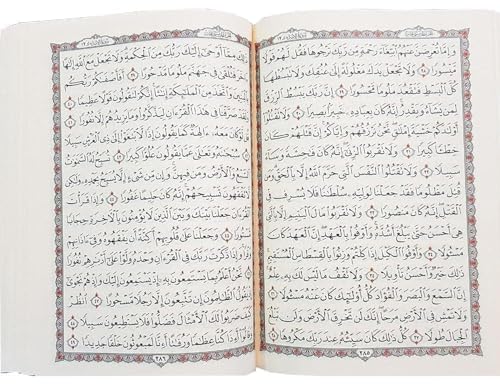 وَإِمَّا تُعْرِضَنَّ عَنْهُمُ ٱبْتِغَآءَ رَحْمَةٍ مِّن رَّبِّكَ تَرْجُوهَا فَقُل لَّهُمْ قَوْلًا
مَّيْسُورًا ٢٨ وَلَا تَجْعَلْ يَدَكَ مَغْلُولَةً إِلَىٰ عُنُقِكَ وَلَا تَبْسُطْهَا
كُلَّ ٱلْبَسْطِ فَتَقْعُدَ مَلُومًا مَّحْسُورًا ٢٩ إِنَّ رَبَّكَ يَبْسُطُ ٱلرِّزْقَ
لِمَن يَشَآءُ وَيَقْدِرُ إِنَّهُۥ كَانَ بِعِبَادِهِۦ خَبِيرًۢا بَصِيرًا ٣٠ وَلَا تَقْتُلُوٓا۟
أَوْلَٰدَكُمْ خَشْيَةَ إِمْلَٰقٍ نَّحْنُ نَرْزُقُهُمْ وَإِيَّاكُمْ إِنَّ قَتْلَهُمْ كَانَ
خِطْـًٔا كَبِيرًا ٣١ وَلَا تَقْرَبُوا۟ ٱلزِّنَىٰٓ إِنَّهُۥ كَانَ فَٰحِشَةً وَسَآءَ
سَبِيلًا ٣٢ وَلَا تَقْتُلُوا۟ ٱلنَّفْسَ ٱلَّتِى حَرَّمَ ٱللَّهُ إِلَّا بِٱلْحَقِّ وَمَن
قُتِلَ مَظْلُومًا فَقَدْ جَعَلْنَا لِوَلِيِّهِۦ سُلْطَٰنًا فَلَا يُسْرِف فِّى
ٱلْقَتْلِ إِنَّهُۥ كَانَ مَنصُورًا ٣٣ وَلَا تَقْرَبُوا۟ مَالَ ٱلْيَتِيمِ إِلَّا بِٱلَّتِى
هِىَ أَحْسَنُ حَتَّىٰ يَبْلُغَ أَشُدَّهُۥ وَأَوْفُوا۟ بِٱلْعَهْدِ إِنَّ ٱلْعَهْدَ كَانَ
مَسْـُٔولًا ٣٤ وَأَوْفُوا۟ ٱلْكَيْلَ إِذَا كِلْتُمْ وَزِنُوا۟ بِٱلْقِسْطَاسِ ٱلْمُسْتَقِيمِ
ذَٰلِكَ خَيْرٌ وَأَحْسَنُ تَأْوِيلًا ٣٥ وَلَا تَقْفُ مَا لَيْسَ لَكَ بِهِۦ عِلْمٌ
إِنَّ ٱلسَّمْعَ وَٱلْبَصَرَ وَٱلْفُؤَادَ كُلُّ أُو۟لَٰٓئِكَ كَانَ عَنْهُ مَسْـُٔولًا ٣٦
وَلَا تَمْشِ فِى ٱلْأَرْضِ مَرَحًا إِنَّكَ لَن تَخْرِقَ ٱلْأَرْضَ وَلَن تَبْلُغَ
ٱلْجِبَالَ طُولًا ٣٧ كُلُّ ذَٰلِكَ كَانَ سَيِّئُهُۥ عِندَ رَبِّكَ مَكْرُوهًا ٣٨
٢٨٥
ذَٰلِكَ مِمَّآ أَوْحَىٰٓ إِلَيْكَ رَبُّكَ مِنَ ٱلْحِكْمَةِ وَلَا تَجْعَلْ مَعَ ٱللَّهِ إِلَٰهًا
ءَاخَرَ فَتُلْقَىٰ فِى جَهَنَّمَ مَلُومًا مَّدْحُورًا ٣٩ أَفَأَصْفَىٰكُمْ رَبُّكُم
بِٱلْبَنِينَ وَٱتَّخَذَ مِنَ ٱلْمَلَٰٓئِكَةِ إِنَٰثًا إِنَّكُمْ لَتَقُولُونَ قَوْلًا عَظِيمًا ٤٠
وَلَقَدْ صَرَّفْنَا فِى هَٰذَا ٱلْقُرْءَانِ لِيَذَّكَّرُوا۟ وَمَا يَزِيدُهُمْ إِلَّا نُفُورًا ٤١
قُل لَّوْ كَانَ مَعَهُۥٓ ءَالِهَةٌ كَمَا يَقُولُونَ إِذًا لَّٱبْتَغَوْا۟ إِلَىٰ ذِى ٱلْعَرْشِ سَبِيلًا
٤٢ سُبْحَٰنَهُۥ وَتَعَٰلَىٰ عَمَّا يَقُولُونَ عُلُوًّا كَبِيرًا ٤٣ تُسَبِّحُ لَهُ ٱلسَّمَٰوَٰتُ
ٱلسَّبْعُ وَٱلْأَرْضُ وَمَن فِيهِنَّ وَإِن مِّن شَىْءٍ إِلَّا يُسَبِّحُ بِحَمْدِهِۦ وَلَٰكِن
لَّا تَفْقَهُونَ تَسْبِيحَهُمْ إِنَّهُۥ كَانَ حَلِيمًا غَفُورًا ٤٤ وَإِذَا قَرَأْتَ
ٱلْقُرْءَانَ جَعَلْنَا بَيْنَكَ وَبَيْنَ ٱلَّذِينَ لَا يُؤْمِنُونَ بِٱلْـَٔاخِرَةِ حِجَابًا
مَّسْتُورًا ٤٥ وَجَعَلْنَا عَلَىٰ قُلُوبِهِمْ أَكِنَّةً أَن يَفْقَهُوهُ وَفِىٓ ءَاذَانِهِمْ
وَقْرًا وَإِذَا ذَكَرْتَ رَبَّكَ فِى ٱلْقُرْءَانِ وَحْدَهُۥ وَلَّوْا۟ عَلَىٰٓ أَدْبَٰرِهِمْ نُفُورًا
٤٦ نَّحْنُ أَعْلَمُ بِمَا يَسْتَمِعُونَ بِهِۦٓ إِذْ يَسْتَمِعُونَ إِلَيْكَ وَإِذْ هُمْ نَجْوَىٰٓ
إِذْ يَقُولُ ٱلظَّٰلِمُونَ إِن تَتَّبِعُونَ إِلَّا رَجُلًا مَّسْحُورًا ٤٧ ٱنظُرْ
كَيْفَ ضَرَبُوا۟ لَكَ ٱلْأَمْثَالَ فَضَلُّوا۟ فَلَا يَسْتَطِيعُونَ سَبِيلًا ٤٨
وَقَالُوٓا۟ أَءِذَا كُنَّا عِظَٰمًا وَرُفَٰتًا أَءِنَّا لَمَبْعُوثُونَ خَلْقًا جَدِيدًا ٤٩
٢٨٦